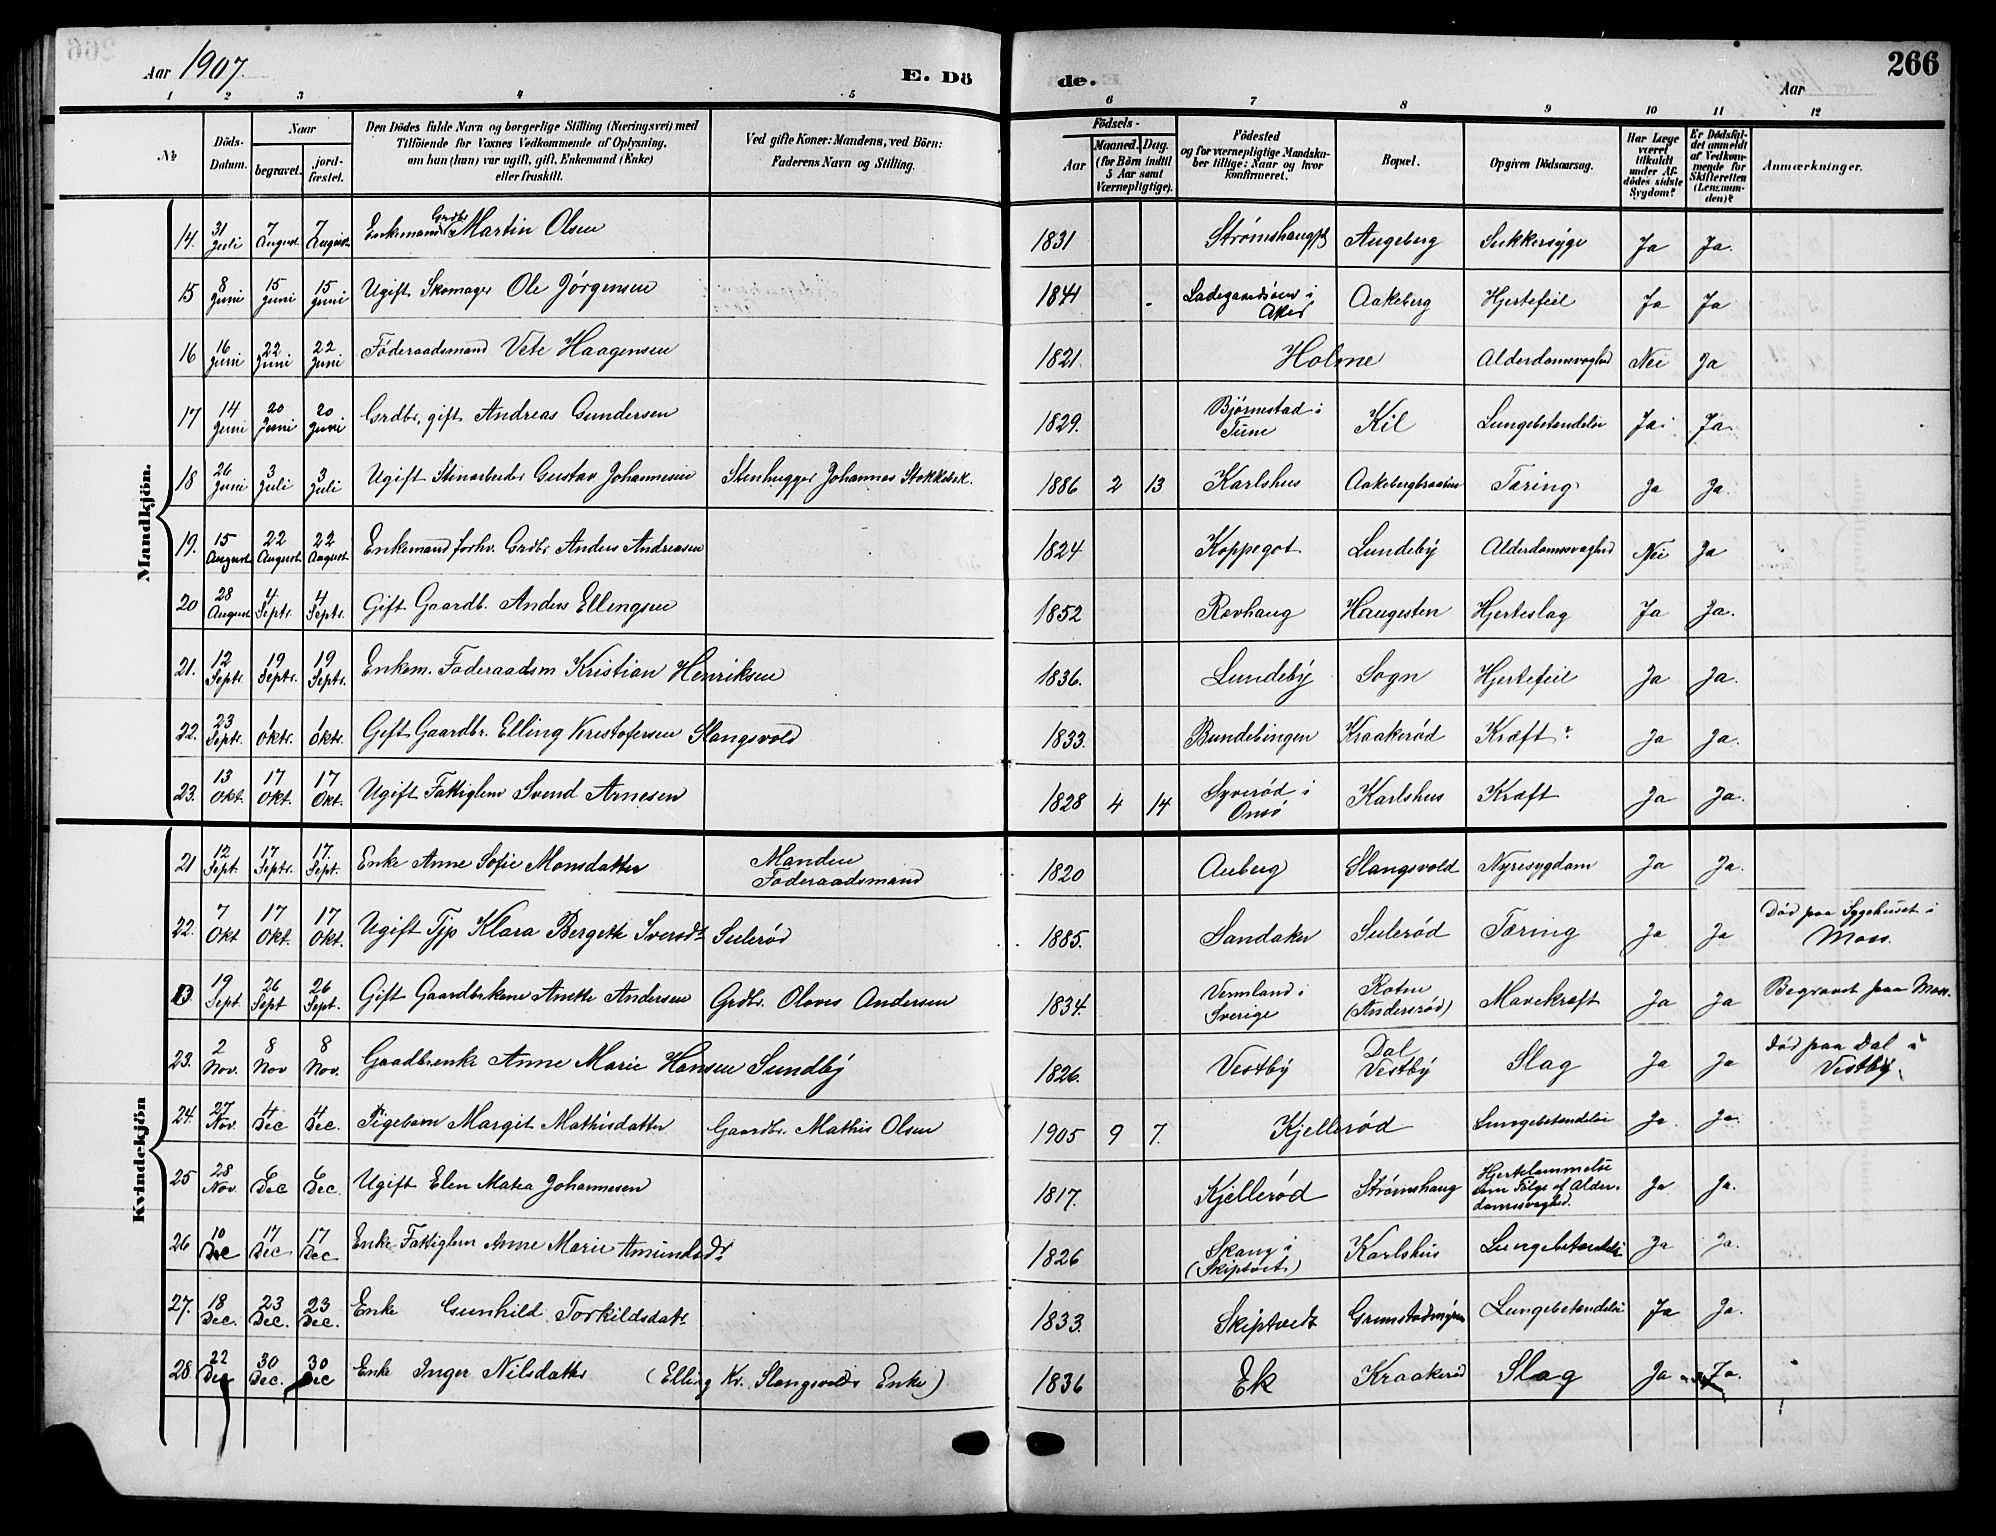 Aar 1907. E. Dö de. Aar 266
1 2 3 4 5 6 7 8 9 10 11 12
No
Döds-Datum.
Naar
begravet.
jord-fæstet.
Den Dödes fulde Navn og borgerlige Stilling (Næringsvei) med
Tilföiende for Voxnes Vedkommende af Oplysning,
om han (hun) var ugift, gift, Enkemand (Enke)
eller fraskilt.
Ved gifte Koner: Mandens, ved Börn:
Faderens Navn og Stilling.
Födsels-
Aar
Maaned. Dag.
(for Börn indtil
5 Aar samt
Værnepligtige).
Födested
og for værnepligtige Mandska-
ber tillige: Naar og hvor
konfirmeret.
Bopæl.
Opgiven Dödsaarsag.
Har Læge
været
tilkaldt
under Af-
dödes sidste
Sygdom?
Er Dödsfal-
det anmeldt
af Vedkom-
mende for
Skifteretten
(Lensman-
den)?
Anmærkninger.
Mandkjön.
14. 31 Juli 7 August 7 August Enkemand Grdbr. Martin Olsen 1831 Augeberg Sukkersyge Ja Ja.
15 8 Juni 15 Juni 15 Juni Ugift Skomager Ole Jørgensen 1841 Ladegaardsøen i Aker Aakeberg Hjertefeil Ja Ja
16 16 Juni 22 Juni 22 Juni Føderaadsmand Vete Haagensen 1821. Holme Alderdomssvaghed Nei Ja
17 14 Juni 20 Juni 20 Juni Grdbr, gift Andreas Gundersen 1829. Bjørnestad i Tune Kil Lungebetændelse Ja Ja.
18 26 Juni 3 Juli 3 Juli Ugift Stenarbeider Gustav Johannesen Stenhugger Johannes Stokkebæk. 1886 2 13 Karlshus Aakebergbraaten Tæring Ja Ja.
19. 15 August 22 August 22 August Enkemand forhv. Grdbr Anders Andreasen 1824 Koppegot Lundeby Alderdomssvaghed Nei Ja
20 28 August 4 Septr. 4 Septr. Gift Gaardb. Anders Ellingsen 1852 Rovhaug Haugesten Hjerteslag Ja Ja.
21. 12 Septr. 19 Septr. 19 Septr. Enkem. Føderaadsm Kristian Henriksen 1836. Lundeby Sogn Hjertefeil Ja Ja.
22. 23 Septr. 1 Oktr. 1 Oktr. Gift Gaardbr. Elling Kristofersen Slangsvold 1833. Bundebingen Kraakerød Kræft? Ja Ja.
23. 13 Okt. 17 Okt. 17 Okt. Ugift Fattiglem Svend Arnesen 1828 4 14 Syverød i Onsø Karlshus Kræft Ja Ja.
Kvindekjön
21 12 Sept. 17 Septr. 17. Sept. Enke Anne Sofie Monsdatter Manden Føderaadsmand 1820 Auberg Slangsvold Nyresygdom Ja Ja.
22. 7 Okt 17 Okt. 17 Okt. Ugift Tjp Klara Bergete Iversdt. Sulerød 1885. Sandaker Sulerød Tæring Ja Ja Død paa Sygehuset i Moss.
19 Sept. 26 Sept 26 Sept. Gift Gaardbrkone Anette Andersen Grdbr. Oloves Andersen 1834. Vermland i Sverige Rotne (Andersrød) Mavekræft Ja Ja Begravet paa Moss.
23. 2 Nov. 8 Nov 8 Nov. Gaardbrenke Anne Marie Hansen Sundby 1826. Vestby Dal Vestby Slag Ja Ja død paa Dal i Vestby.
24. 27 Nov. 4 Dec 4 Dec. Pigebarn Margit Mathisdatter Gaardbr. Mathis Olsen 1905 9 7. Kjellerød Lungebetændelse Ja. Ja.
25 28 Nov. 6 Dec 6 Dec. Ugift Elen Matea Johannesen 1817. Kjellerød Strømshaug Hjertelammelse som Følge af Alder-domssvaghed. Ja Ja.
26 10 Dec 17 Dec 17 Dec Enke Fattiglem Anne Marie Amundsdr 1826 Skaug i (Skiptvet) Karlshus Lungebetændelse Ja Ja.
27. 18 Dec. 23 Dec. 23 Dec. Enke Gunhild Torkildsdatr. 1833. Skiptvedt Lungebetændelse Ja Ja.
28. 22 Dec 30 Dec. 30 Dec Enke Inger Nilsdatter (Elling Kr. Slangsvolds Enke) 1836 Ek Kraakerød Slag Ja Ja.